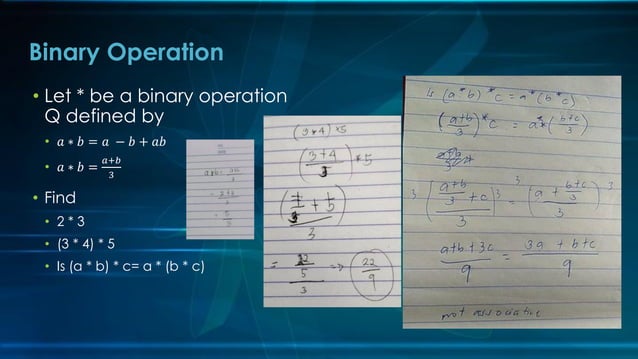 Binary Operation
• Let * be a binary operation
Q defined by
• a ∗ b = a − b + ab
• a ∗ b = a+b/3
• Find
• 2 * 3
• (3 * 4) * 5
• Is (a * b) * c= a * (b * c)
a*b = a+b/3
= 2+3/3
= 5/3
(3*4)*5
(3+4/3)*5
(7/3 + 5)
3
= 22/5/3 => 22/9
Is (a*b)*c = a*(b*c)
(a+b/3)*c = a*(b+c/3)
3 (a+b/3 + c / 3) 3 = 3 (a + b+c/3 / 3) 3
a+b+3c/9 = 3a+b+c/9
not associative